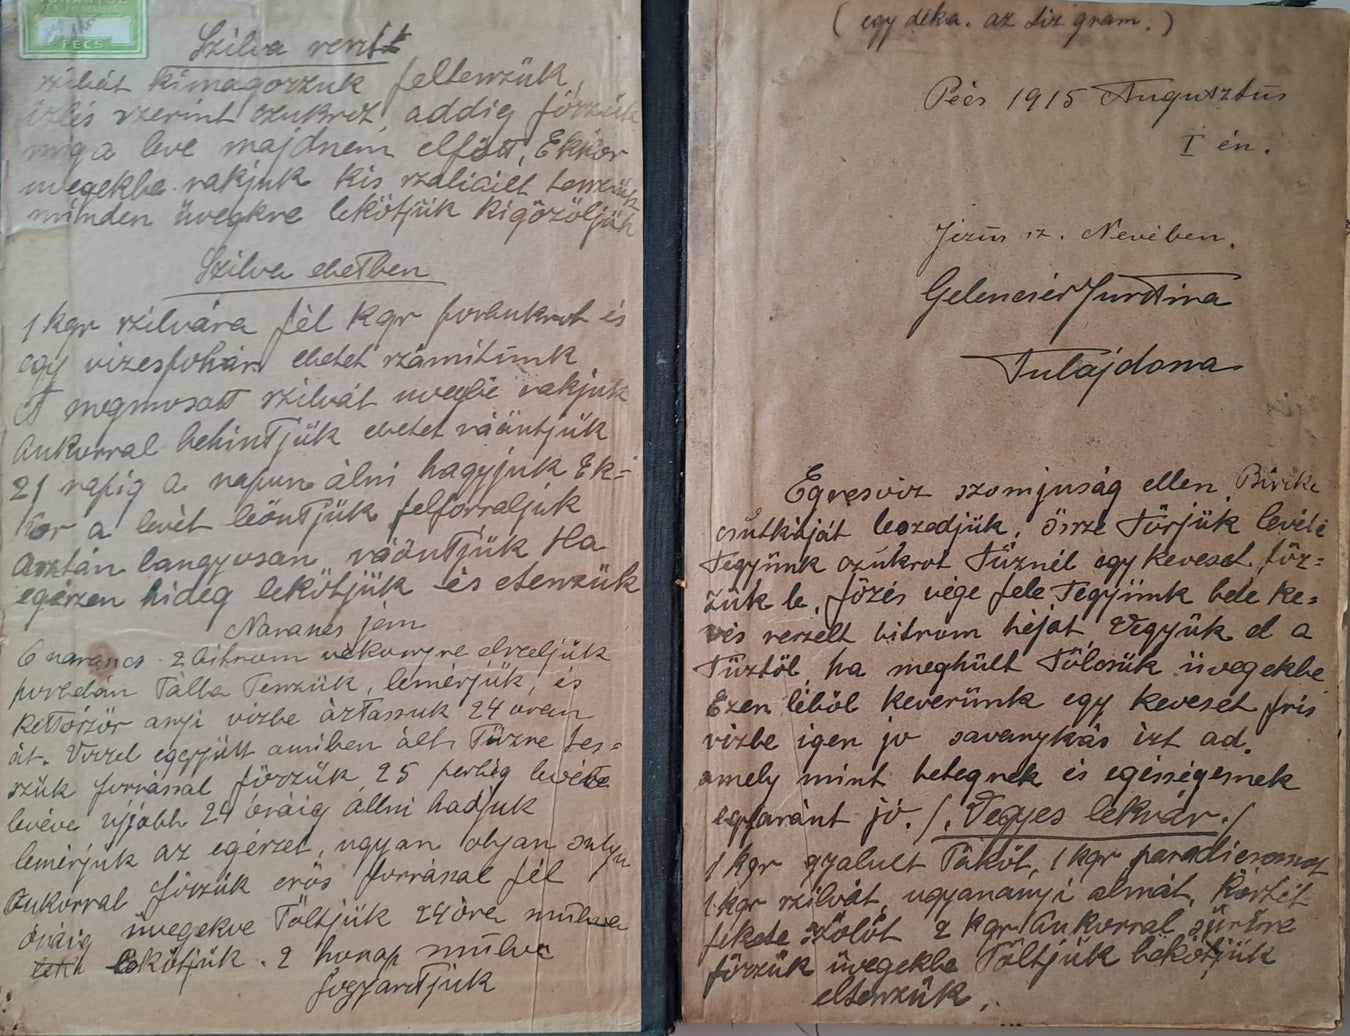 PÉCS
Szilva reszelt
szilvát kimagozzuk feltenzük,
izlés szerint czukrot, addig főzzük
mig a leve majdnem elfőtt, Ekkor
uvegekbe rakjuk kis szaliciilt tenzük
minden üvegkre lekötjük kigőzöljük
Szilva ecetben
1 kgr szilvára fél kgr porcukrot és
egy vizespohár ecetet számitunk
A megmosott szilvát uvegbe rakjuk
Cukorral behintjük ecetet ráöntjük
21 napig a napon álni hagyjuk Ek-
kor a levét leöntjük felforraljuk
Aztán langyosan ráöntjük Ha
egérzen hideg lekötjük és etenzük
Narancs jem
6 narancs 2 citrom vékonyre elszeljük
porcelán Tálba Tenzük, lemérjük, és
kettőször anyi vizbe áztassuk 24 oran
át. Vizzel eggyütt amiben állt Tüzre tes=
szük forrással főzzük 25 percig levéte
levéve újjobb 24 óráig állni hadjuk
lemérjük az egérzet, ugyan olyan sulyu
Cukorral főzzük erős forrással fél
óráig üvegekve Töltjük 24 óra mulva
lekötjük. 2 honap mulva
fogyarttjuk
( egy déka. az tiz gram. )
Pécs 1915 Augusztus
I én.
Jézus sz. Nevében.
Gelencsér Jusztina
Tulájdona
Egresviz szomjuság ellen, Birike
csutkáját leszedjük, össze Törjük levéb
Tegyünk czukrot Tüznél egy keveset főz=
zük le, főzés vége fele Tegyünk bele ke=
vés reszelt citrom héját, Vegyük el a
Tüztöl, ha meghült Tölcsük üvegekbe
Ezen léböl keverünk egy keveset fris
vizbe igen jo savanykás izt ad,
amely mint betegnek és egésségesnek
egyaránt jó. /. Vegyes lekvár. /
1 kgr gyalult Tököt, 1 kgr paradicsomot
1 kgr szilvát, ugyananyi almát,
fekete szölöt 2 kgr Cukorral sürüre
főzzük üvegekbe Töltjük lekötjük
eltenzük.